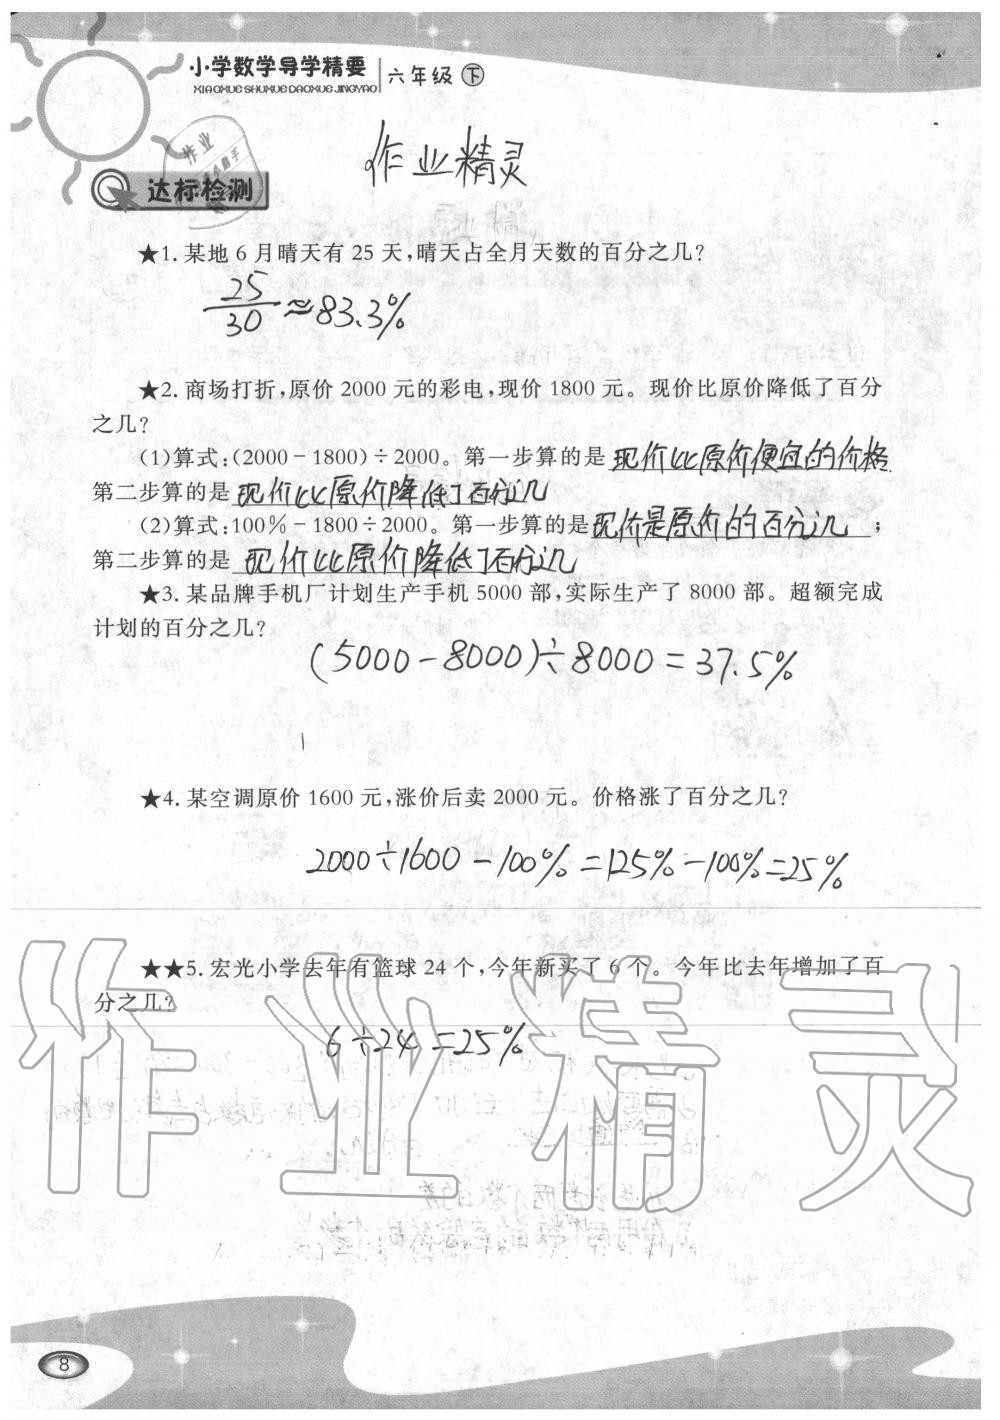 小学数学导学精要
XIAOXUESHUXUEDAOXUEJINGYAO
六年级 下
作业
作业精灵
达标检测
★1. 某地 6 月晴天有 25 天,晴天占全月天数的百分之几?
25/30≈83.3%
★2. 商场打折,原价 2000 元的彩电,现价 1800 元。现价比原价降低了百分
之几?
(1)算式:(2000－1800)÷2000。第一步算的是 现价比原价便宜的价格
第二步算的是 现价比原价降低了百分之几
(2)算式:100%－1800÷2000。第一步算的是 现价是原价的百分之几 ;
第二步算的是 现价比原价降低了百分之几
★3. 某品牌手机厂计划生产手机 5000 部,实际生产了 8000 部。超额完成
计划的百分之几?
(5000－8000)÷8000＝37.5%
★4. 某空调原价 1600 元,涨价后卖 2000 元。价格涨了百分之几?
2000÷1600－100%＝125%－100%＝25%
★★5. 宏光小学去年有篮球 24 个,今年新买了 6 个。今年比去年增加了百
分之几?
6÷24＝25%
作业精灵
8